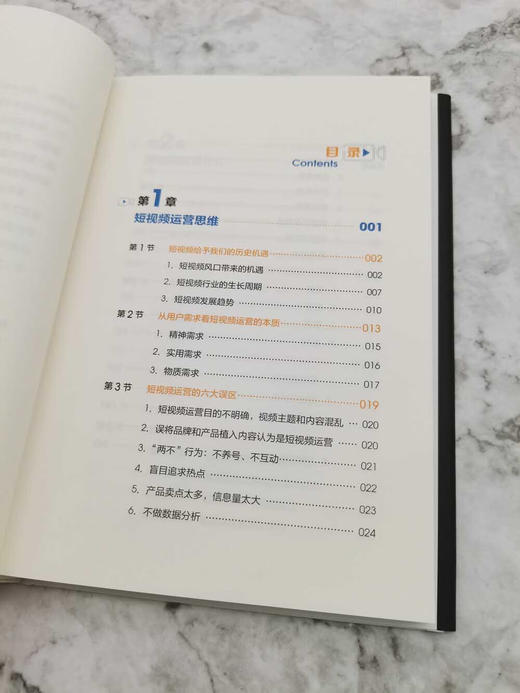 目 录
Contents
第1章
短视频运营思维 001
第1节 短视频给予我们的历史机遇 002
1. 短视频风口带来的机遇 002
2. 短视频行业的生长周期 007
3. 短视频发展趋势 010
第2节 从用户需求看短视频运营的本质 013
1. 精神需求 015
2. 实用需求 016
3. 物质需求 017
第3节 短视频运营的六大误区 019
1. 短视频运营目的不明确，视频主题和内容混乱 020
2. 误将品牌和产品植入内容认为是短视频运营 020
3. “两不”行为：不养号、不互动 021
4. 盲目追求热点 022
5. 产品卖点太多，信息量太大 023
6. 不做数据分析 024